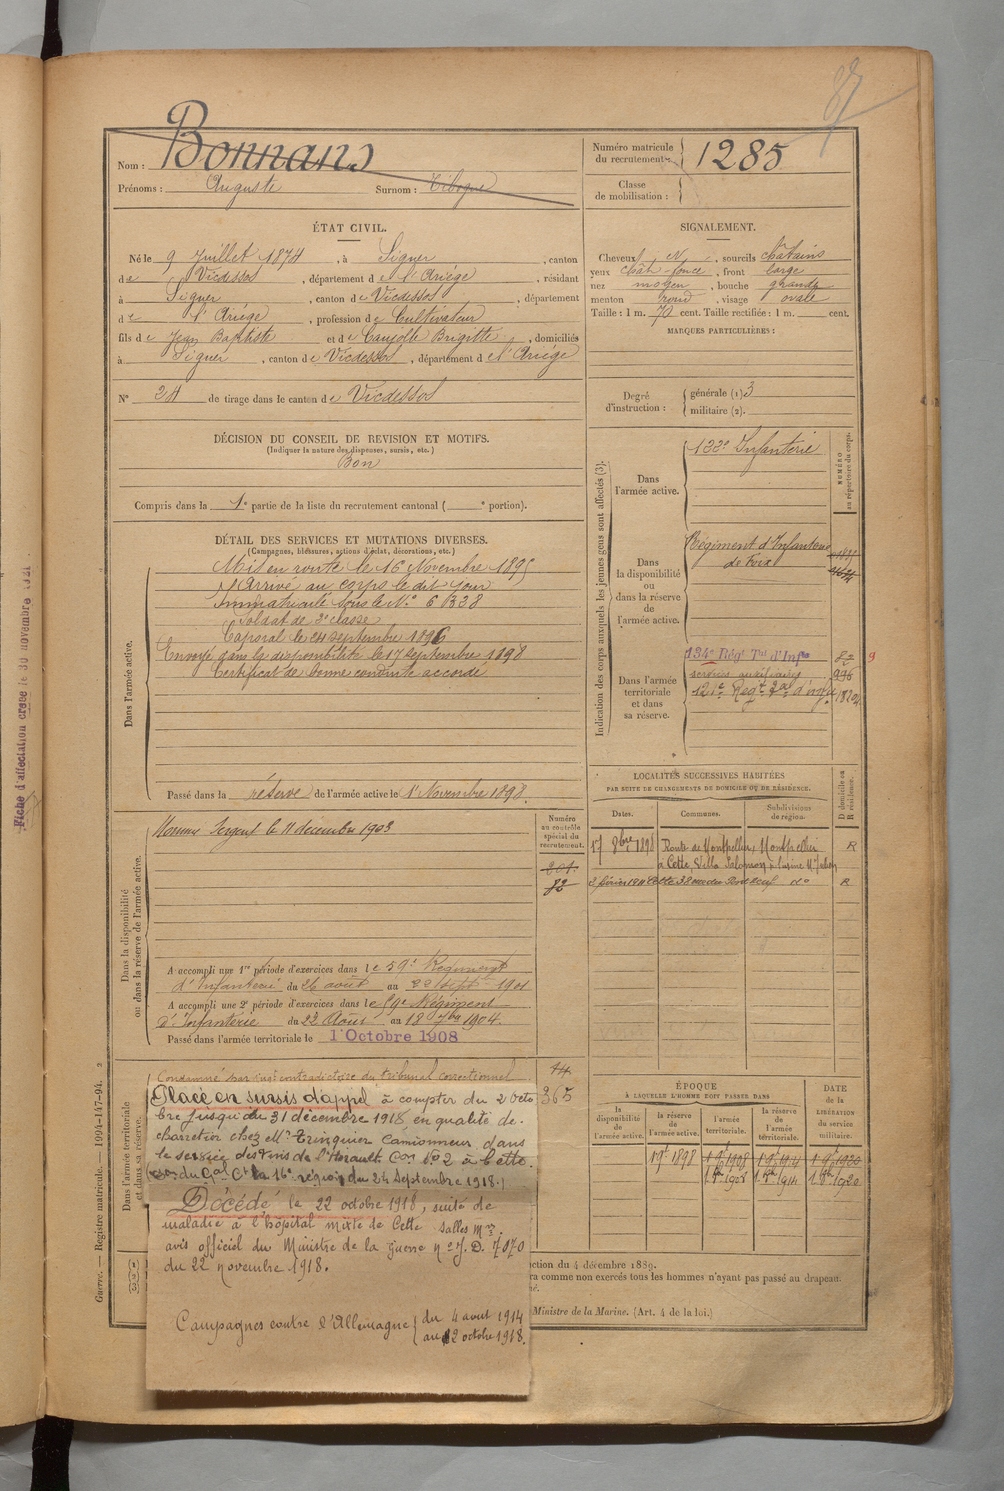 87
Nom : Bonnans
Prénoms : Auguste Surnom :
Numéro matricule
du recrutement : 1285
Classe
de mobilisation :
ÉTAT CIVIL.
Né le 9 Juillet 1874, à Siguer, canton
de Vicdessos, département de l'Ariége, résidant
à Siguer, canton de Vicdessos, département
de l'Ariége, profession de Cultivateur
fils de Jean Baptiste et de Caujolle Brigitte, domiciliés
à Siguer, canton de Vicdessos, département de l'Ariége
N° 24 de tirage dans le canton de Vicdessos
SIGNALEMENT.
Cheveux N, sourcils châtains
yeux chât. foncé, front large
nez moyen, bouche grande
menton rond, visage ovale
Taille : 1 m. 70 cent. Taille rectifiée : 1 m. cent.
MARQUES PARTICULIÈRES :
Degré
d'instruction :
générale (1) 3
militaire (2).
DÉCISION DU CONSEIL DE REVISION ET MOTIFS.
(Indiquer la nature des dispenses, sursis, etc.)
Bon
Compris dans la 1e partie de la liste du recrutement cantonal ( e portion).
DÉTAIL DES SERVICES ET MUTATIONS DIVERSES.
(Campagnes, blessures, actions d'éclat, décorations, etc.)
Dans l'armée active.
Mis en route le 16 Novembre 1895
Arrivé au corps le dit jour
Immatriculé sous le N°
Soldat de 2e classe
Caporal le 24 septembre 1896
Envoyé dans la disponibilité le 17 septembre 1898
Certificat de bonne conduite accordé
Passé dans la réserve de l'armée active le 1er Novembre 1898.
Indication des corps auxquels les jeunes gens sont affectés (3).
NUMÉRO
au répertoire du corps.
Dans
l'armée active.
122e Infanterie
Dans
la disponibilité
ou
dans la réserve
de
l'armée active.
Régiment d'Infanterie
de Foix
Dans l'armée
territoriale
et dans
sa réserve.
134e Régt Tal d'Infie
services auxiliaires
121e Regt d'inf.
82
996
9
Dans la disponibilité
ou dans la réserve de l'armée active.
Nommé Sergent le 11 décembre 1903
Numéro
au contrôle
spécial du
recrutement.
201
82
A accompli une 1re période d'exercices dans le 59e Régiment
d'Infanterie du 26 août au 22 sept 1901
A accompli une 2e période d'exercices dans le 59e Régiment
d'Infanterie du 22 Août au 18 7bre 1904.
Passé dans l'armée territoriale le 1 Octobre 1908
LOCALITÉS SUCCESSIVES HABITÉES
PAR SUITE DE CHANGEMENTS DE DOMICILE OU DE RÉSIDENCE.
Dates. Communes. Subdivisions
de région.
D domicile ou
R résidence.
17 8bre 1898 Route de Montpellier Montpellier R
à Cette, Villa Salomon
3 février 1911 Cette 38 rue du Pont neuf do R
Dans l'armée territoriale
et dans sa réserve.
Condamné par jugt contradictoire du tribunal correctionnel
44
365
Placé en sursis d'appel à compter du 2 Octo
bre jusqu'au 31 décembre 1918 en qualité de
charretier chez Mr Tringuier Camionneur dans
le service des Vins de l'Hérault Con No 2 à Cette.
du Gal Ct la 16e région du 24 Septembre 1918.
Décédé le 22 octobre 1918, suite de
maladie à l'hôpital mixte de Cette salles Mres
avis officiel du Ministre de la guerre no J. D. 7070
du 22 novembre 1918.
Campagnes contre l'Allemagne du 4 aout 1914
au 2 octobre 1918.
ÉPOQUE
À LAQUELLE L'HOMME DOIT PASSER DANS
la
disponibilité
de
l'armée active.
la réserve
de
l'armée active.
l'armée
territoriale.
la réserve
de
l'armée
territoriale.
DATE
de la
LIBÉRATION
du
service
militaire.
1 9t 1898 1 9t 1908 1 9t 1914 1 9t 1920
1 8bre 1908 1 8bre 1914 1 8bre 1920
ction du 4 décembre 1889.
ra comme non exercés tous les hommes n'ayant pas passé au drapeau.
Ministre de la Marine. (Art. 4 de la loi.)
Guerre. — Registre matricule. — 1994-147-94.
Fiche d'affectation créée le 30 novembre 1921